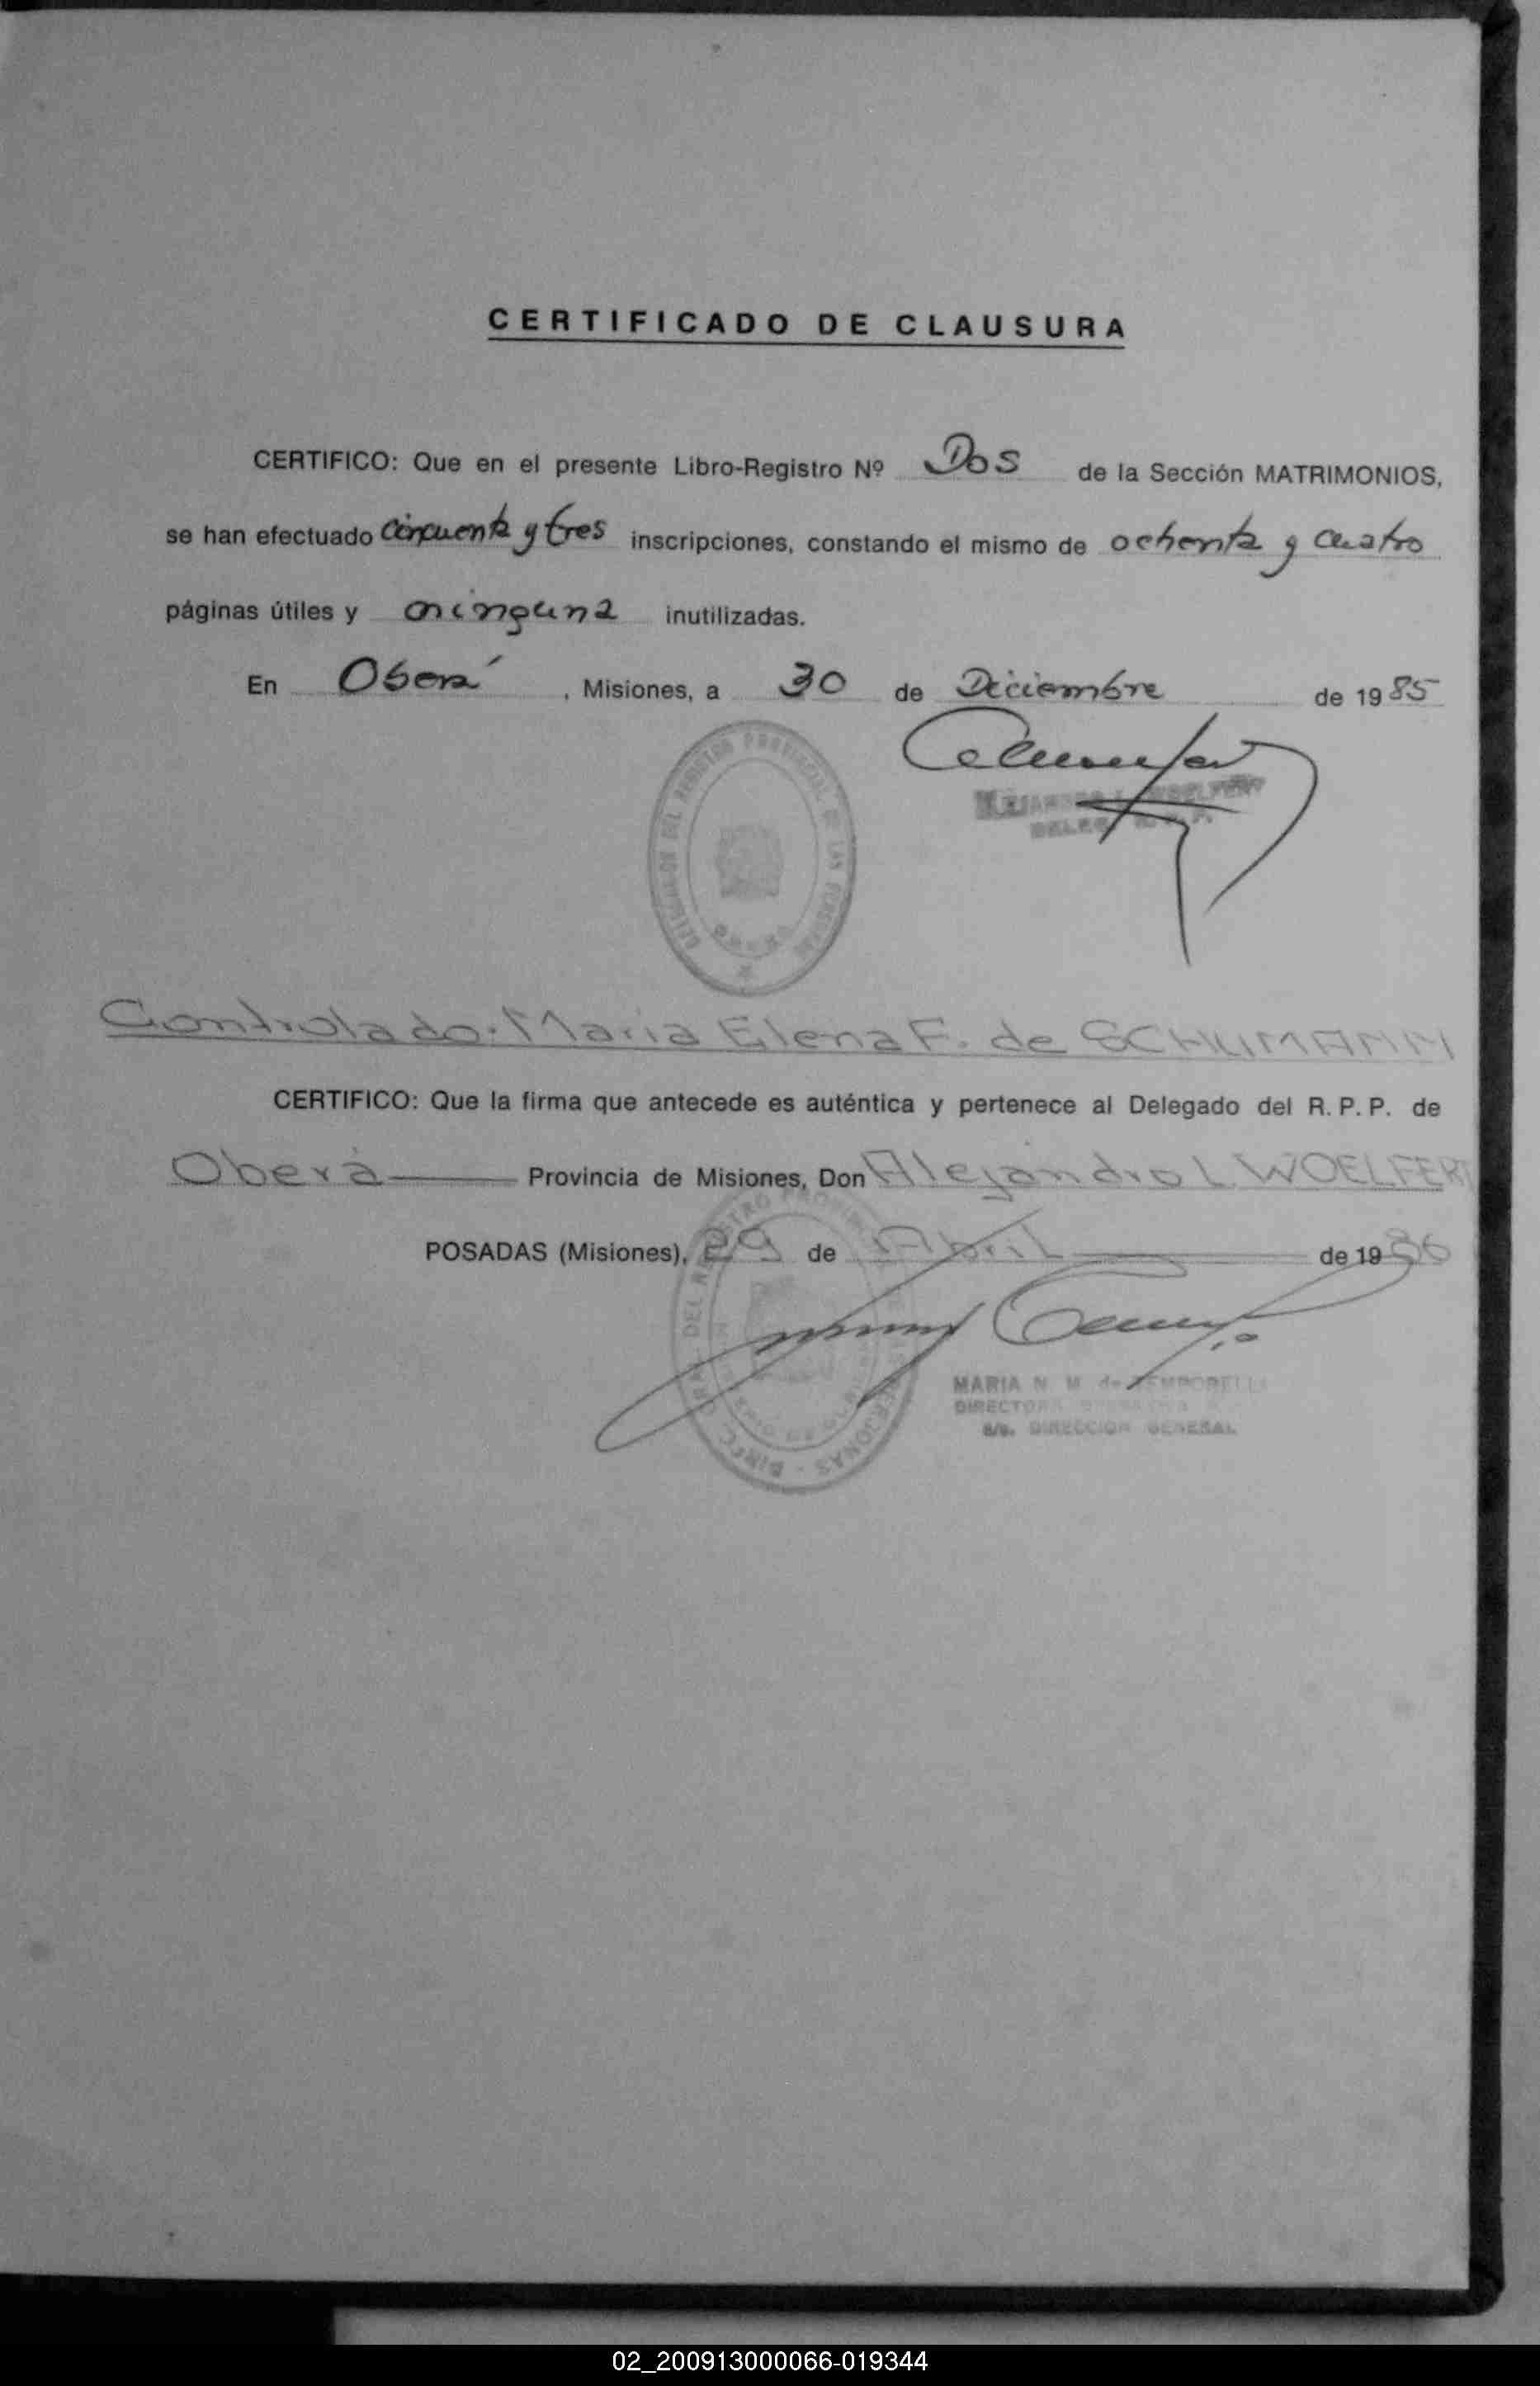 CERTIFICADO DE CLAUSURA
CERTIFICO: Que en el presente Libro-Registro Nº Dos de la Sección MATRIMONIOS,
se han efectuado cincuenta y tres inscripciones, constando el mismo de ochenta y cuatro
páginas útiles y ninguna inutilizadas.
En Oberá, Misiones, a 30 de Diciembre de 1985
DELEGACION DEL REGISTRO PROVINCIAL DE LAS PERSONAS
OBERA
ALEJANDRO L. WOELFERT
Controlado: Maria Elena F. de SCHUMANN
CERTIFICO: Que la firma que antecede es auténtica y pertenece al Delegado del R. P. P. de
Oberá Provincia de Misiones, Don Alejandro L WOELFERT
POSADAS (Misiones), 29 de Abril de 1986
MARIA N. M. de TEMPORELLI
DIRECTORA
a/c. DIRECCION GENERAL
02_200913000066-019344